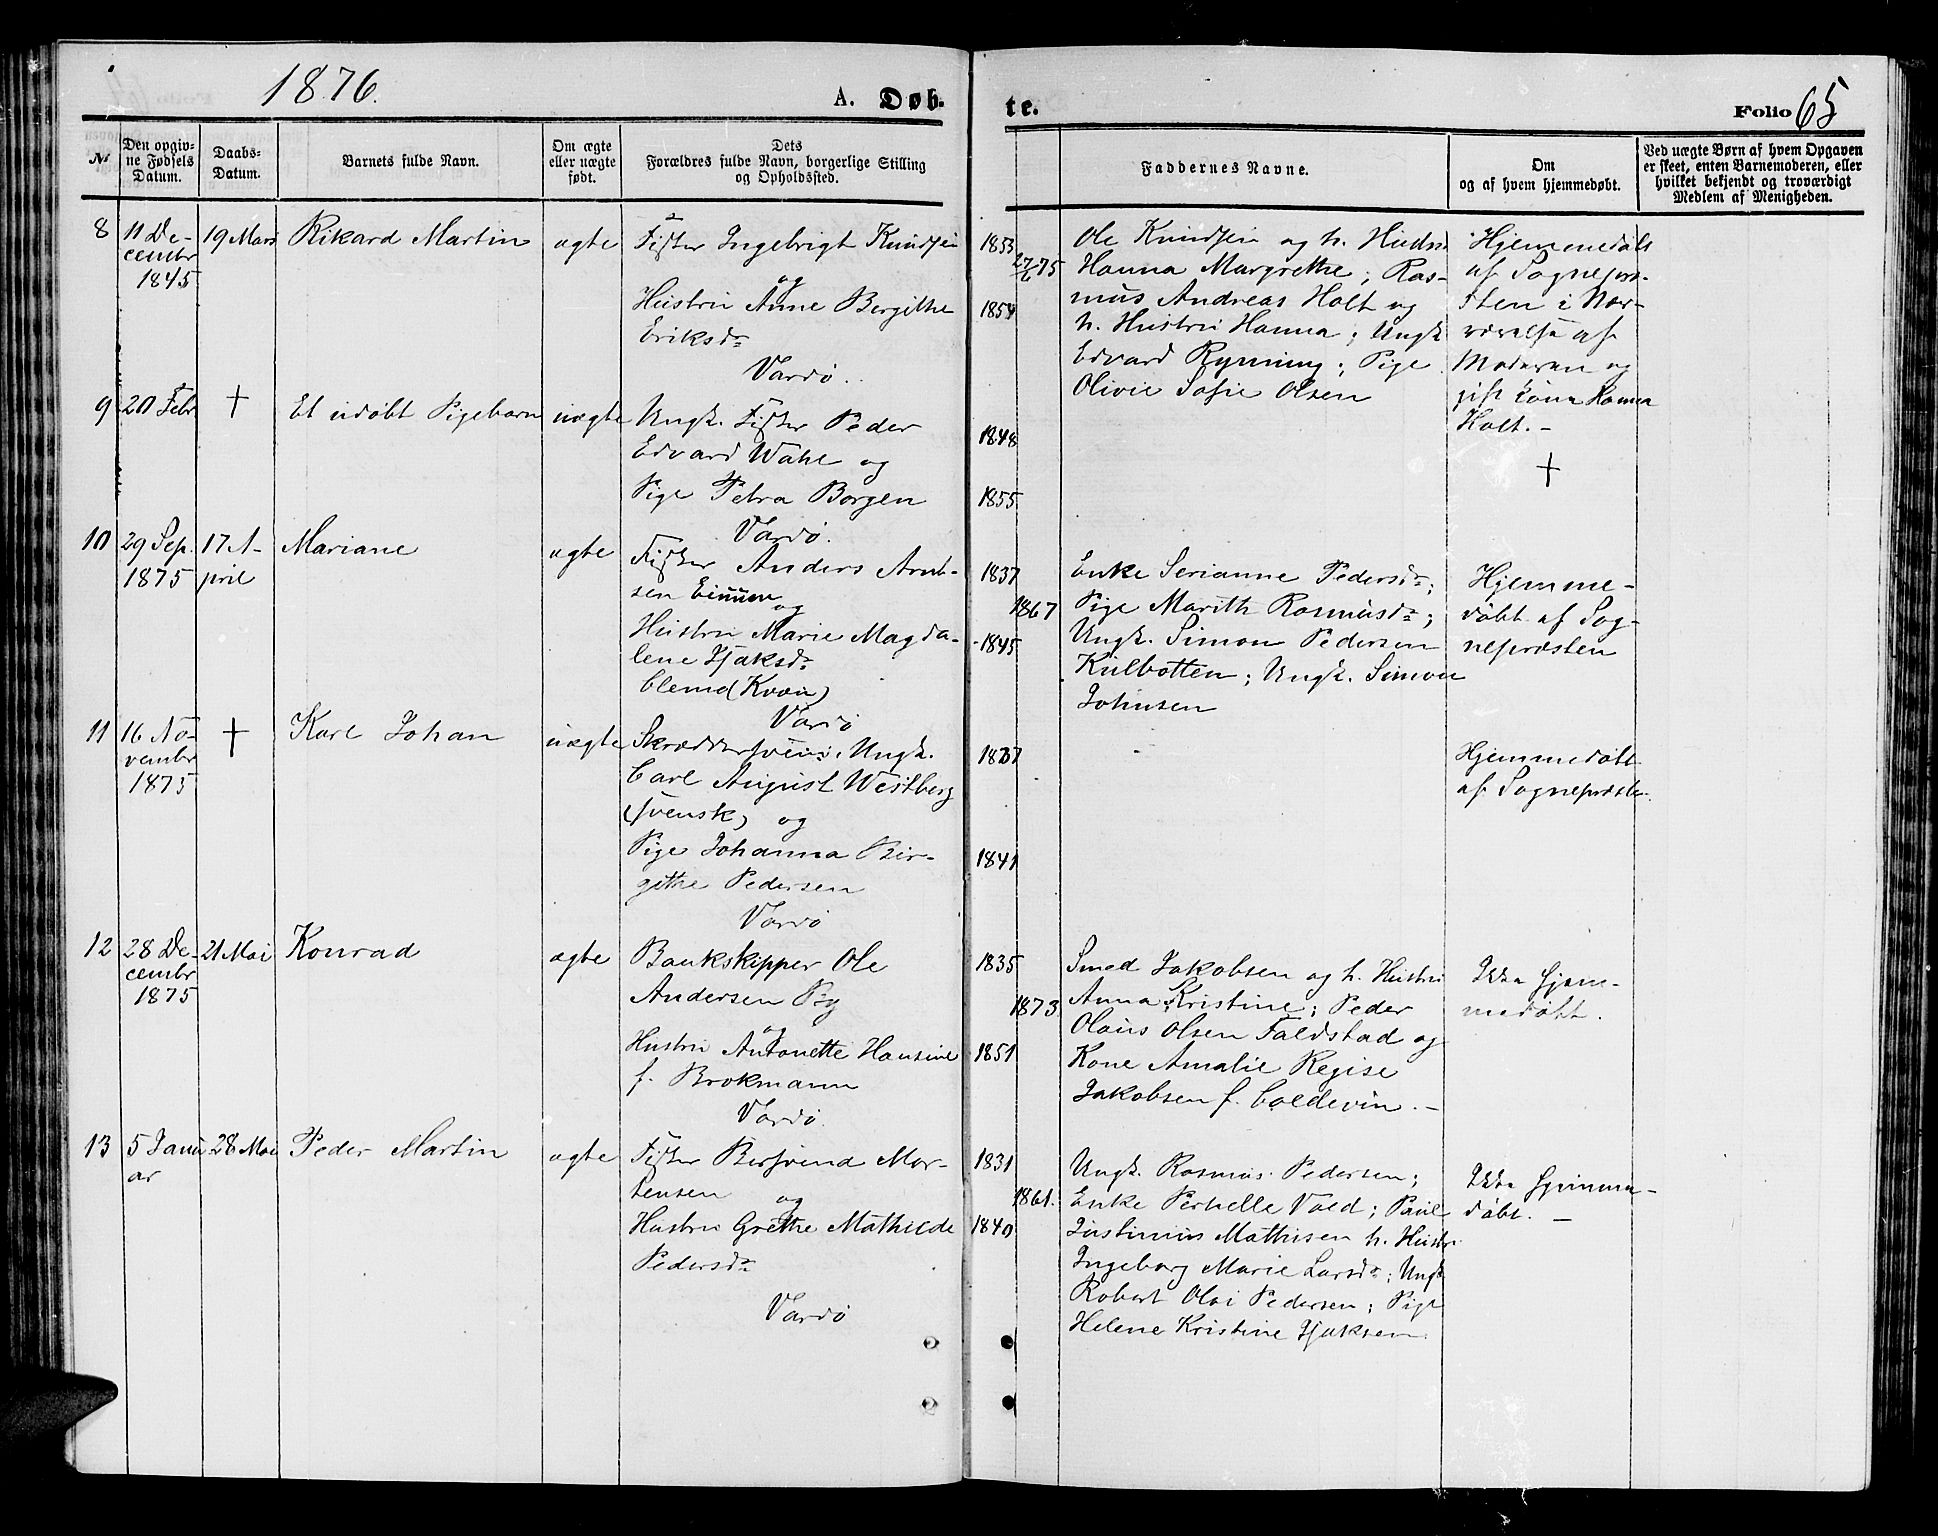 1876.
A. Døb-
te.
Folio 65
№
Den opgiv-
ne Fødsels
Datum.
Daabs-
Datum.
Barnets fulde Navn.
Om ægte
eller uægte
født.
Dets
Forældres fulde Navn, borgerlige Stilling
og Opholdssted.
Faddernes Navne.
Om
og af hvem hjemmedøbt.
Ved uægte Børn af hvem Opgaven
er skeet, enten Barnemoderen, eller
hvilket bekjendt og troværdigt
Medlem af Menigheden.
8
11 De-
cembr
1845
19 Mars
Rikard Martin
ægte
Fisker Ingebrigt Knudsen
og
Hustru Anne Bergithe
Eriksdr
Vardø.
1853
27/6 75
1854
Ole Knudsen og h. Hustru
Hanna Margrethe; Ras-
mus Andreas Holt og
h. Hustru Hanna; Ungk.
Edvard Rynning; Pige
Olivie Sofie Olsen
Hjemmedøbt
af Sognepræ-
sten i Nær-
værelse af
Moderen og
gift Kone Hanna
Holt.-
9
20 Febr
†
Et udøbt Pigebarn
uægte
Ungk. Fisker Peder
Edvard Wahl og
Pige Petra Borgen
Vardø.
1848
1855
†
10
29 Sep.
1875
17 A-
pril
Mariane
ægte
Fisker Anders Arnt-
sen
og
Hustru Marie Magda-
lene Isaksdr
(Kvæn)
Vardø
1837
1867
1845
Enke Serianne Pedersdr;
Pige Marith Rasmusdr;
Ungk. Simon Pedersen
Kulbotten; Ungk. Simon
Johnsen
Hjemme-
døbt af Sog-
nepræsten
11
16 No-
vembr
1875
†
Karl Johan
uægte
Skræddersvend, Ungk.
Carl August Westberg
(svensk) og
Pige Johanna Bir-
githe Pedersen
Vardø
1841
Hjemmedøbt
af Sognepræsten.
12
28 De-
cembr
1875
21 Mai
Konrad
ægte
Bankskipper Ole
Andersen By
og
Hustru Antonette Hansine
f. Brokmann
Vardø.
1835
1873
1851
Smed Jakobsen og h. Hustru
Anna Kristine; Peder
Olaus Olsen Faldstad og
Kone Amalie Regise
Jakobsen f. Coldevin.-
Ikke hjem-
medøbt.
13
5 Janu
ar
28 Mai
Peder Martin
ægte
Fisker Bersvend Mor-
tensen og
Hustru Grethe Mathilde
Pedersdr
Vardø
1831
1861.
1840
Ungk. Rasmus Pedersen;
Enke Pernelle Vold; Paul
Justinius Mathisen h. Hustru
Ingeborg Marie Larsdr; Ungk
Robert Olai Pedersen; Pige
Helene Kristine Isaksen.
Ikke hjemme-
døbt. -